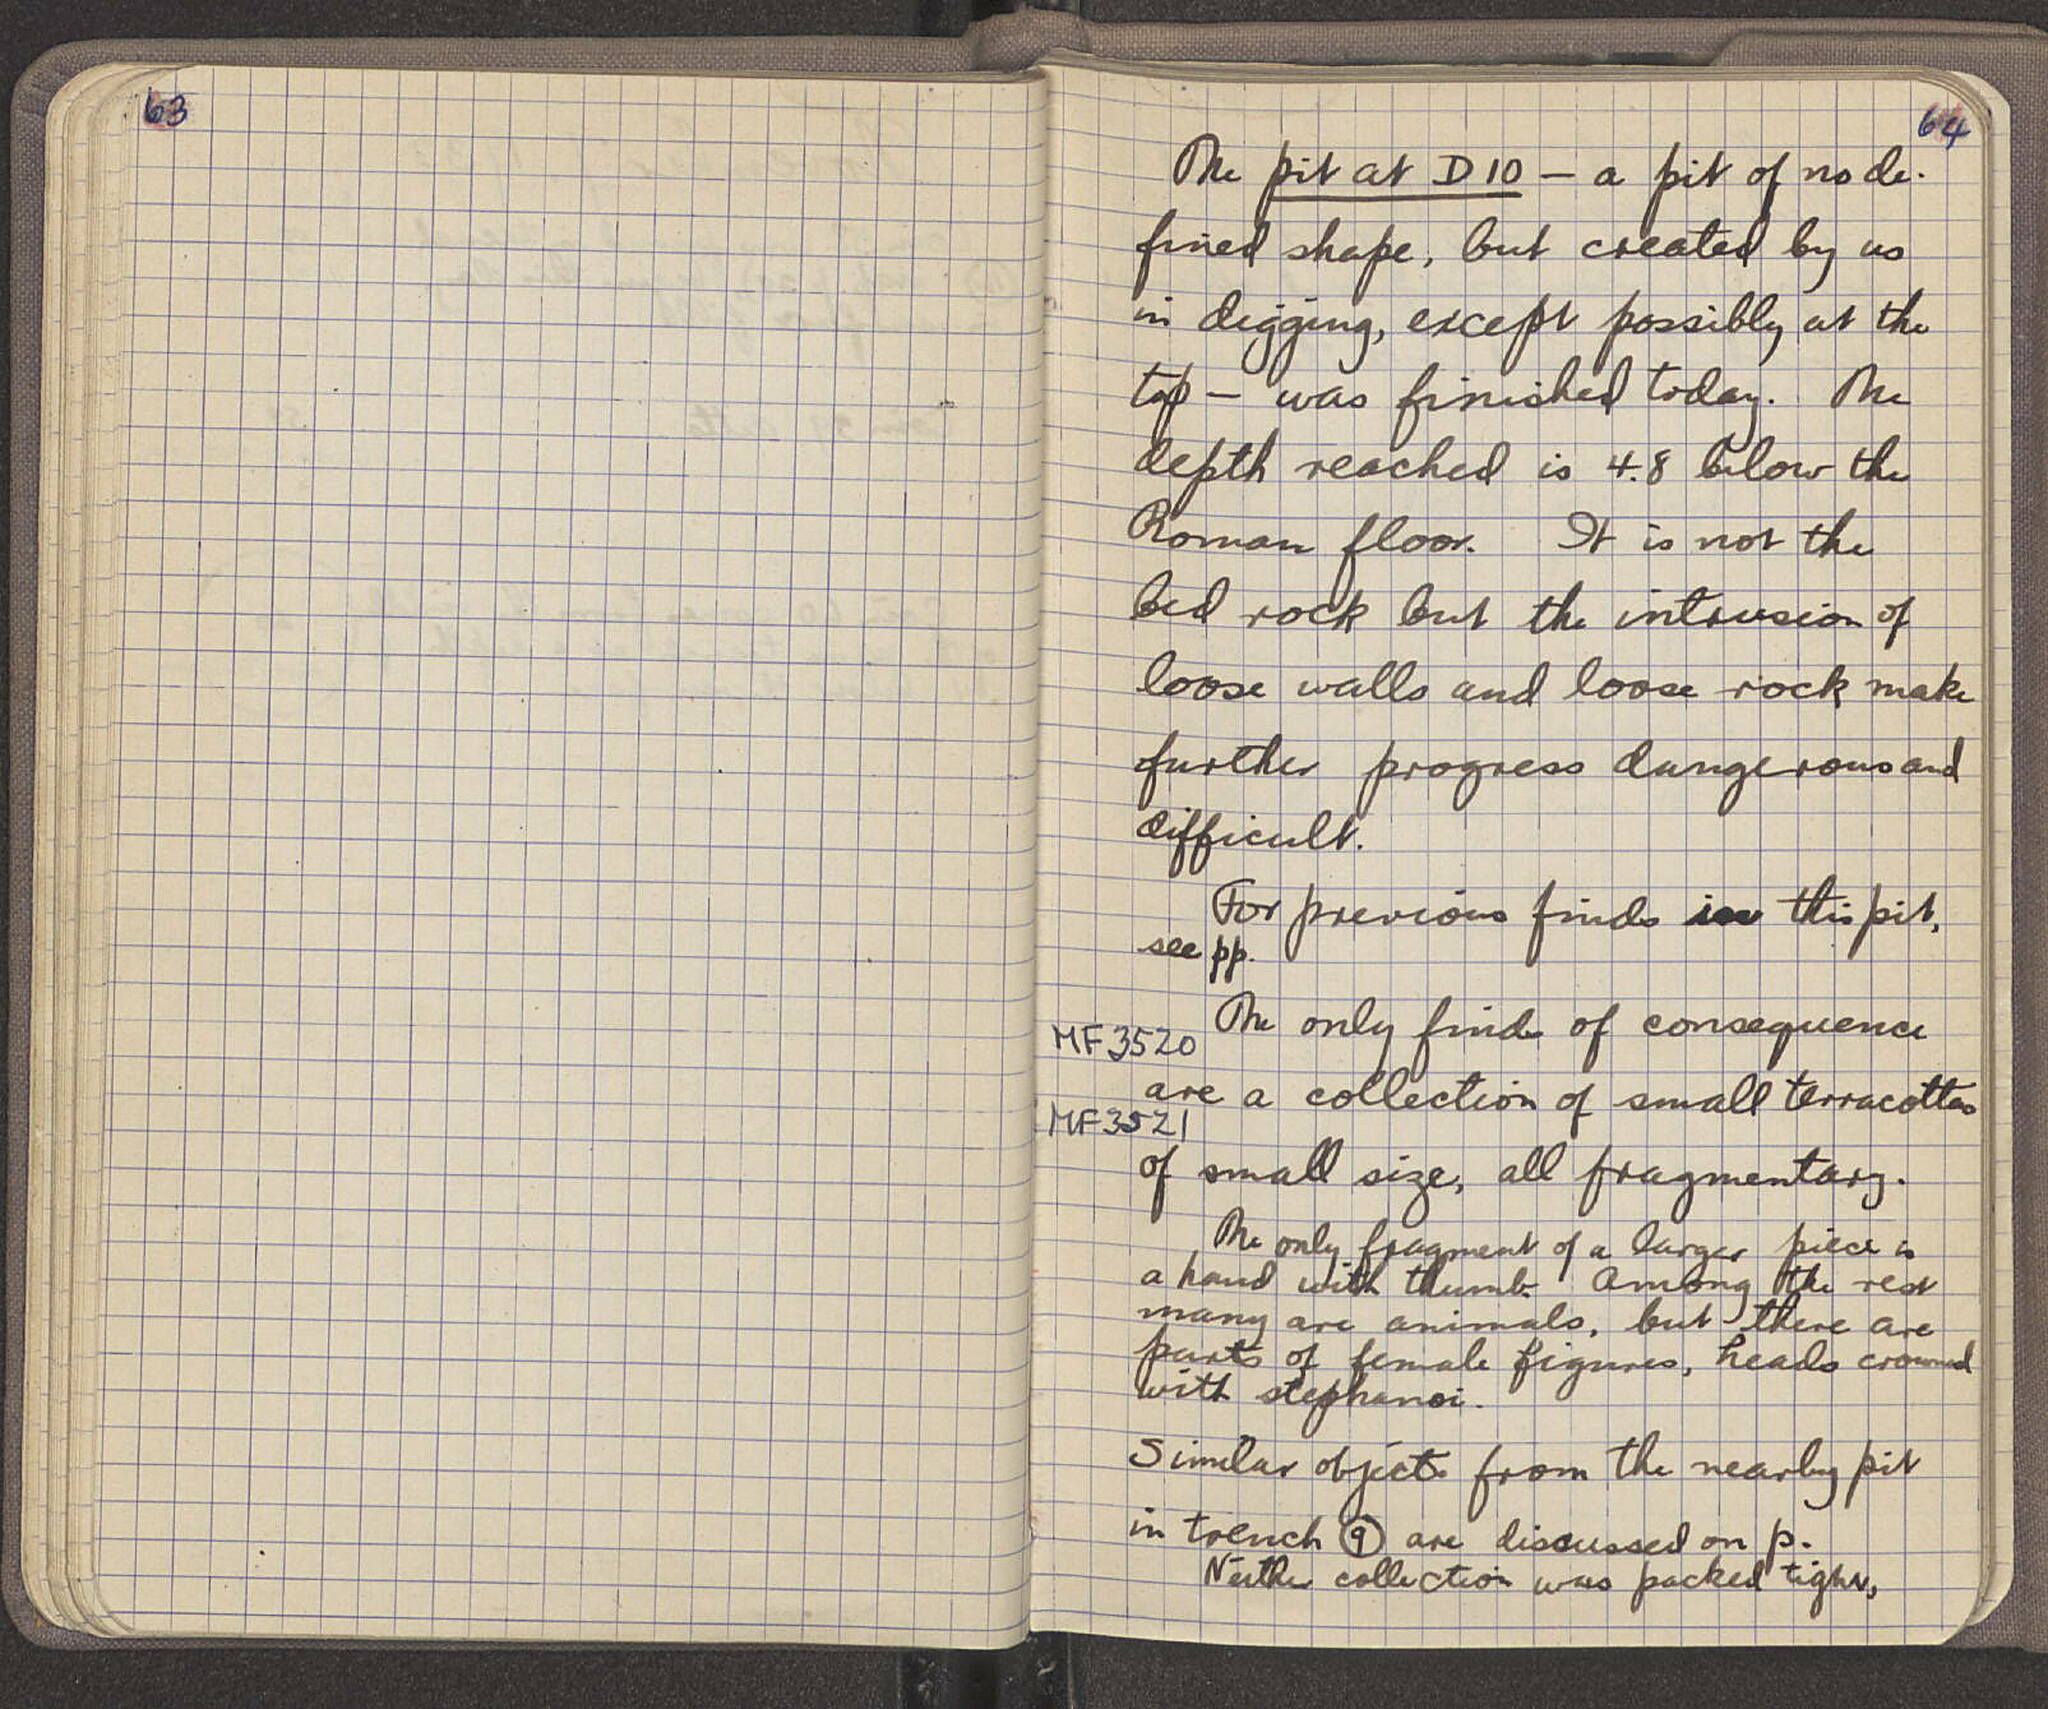 63
64
The pit at D 10 — a pit of no de-
fined shape, but created by us
in digging, except possibly at the
top — was finished today. The
depth reached is 4.8 below the
Roman floor. It is not the
bed rock but the intrusion of
loose walls and loose rock make
further progress dangerous and
difficult.
For previous finds in this pit,
see pp.
The only finds of consequence
MF 3520
are a collection of small terracottas
MF 3521
of small size, all fragmentary.
The only fragment of a larger piece is
a hand with thumb. Among the rest
many are animals, but there are
parts of female figures, heads crowned
with stephanoi.
Similar objects from the nearby pit
in trench 9 are discussed on p.
Neither collection was packed tight,